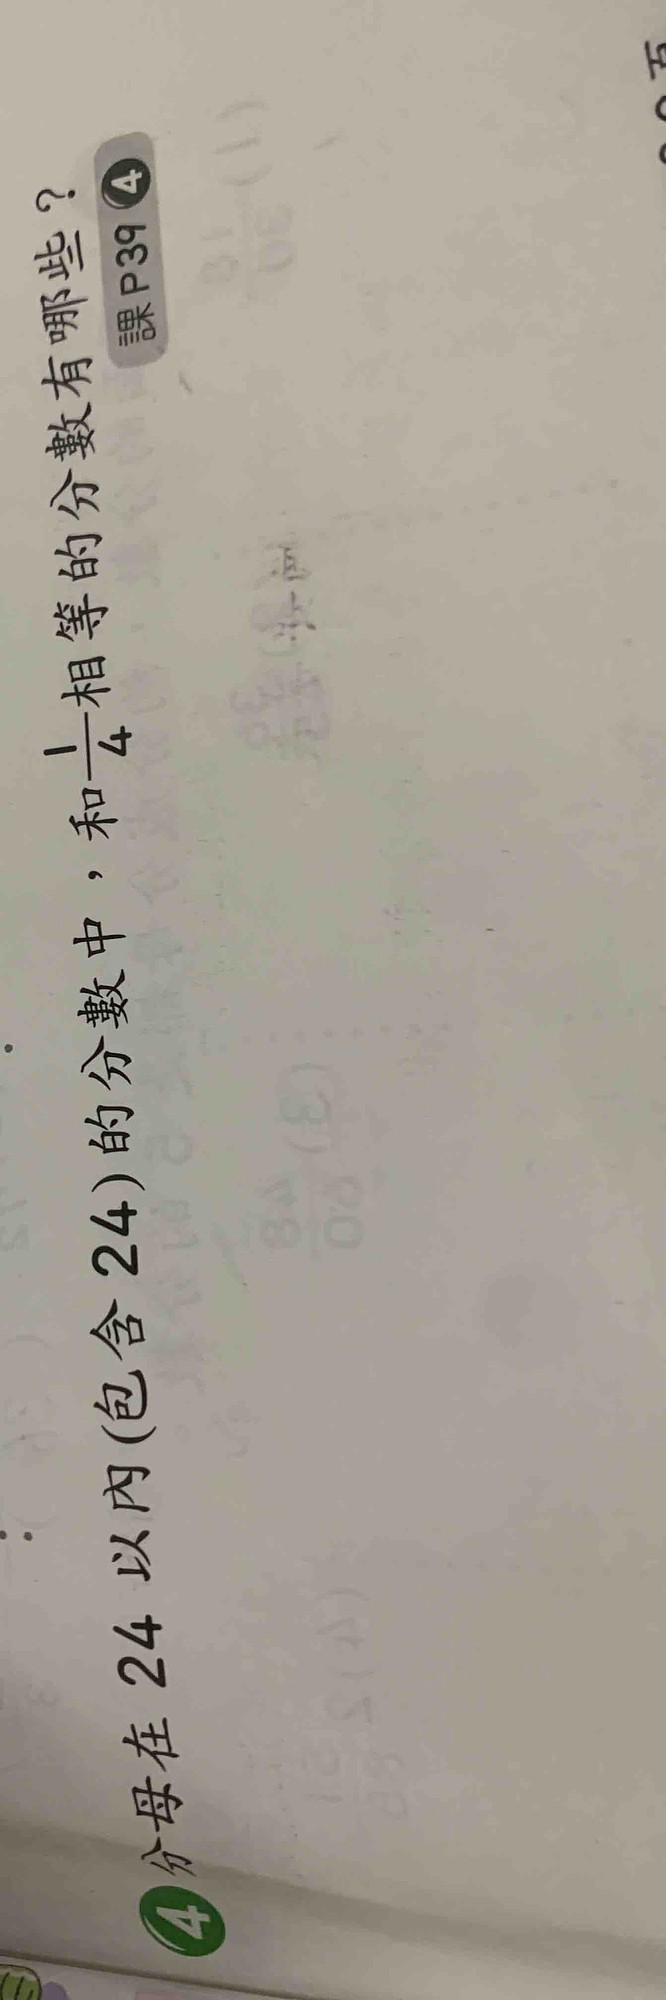 ④分母在 24 以內(包含 24)的分數中，和1/4相等的分數有哪些？
課P39④